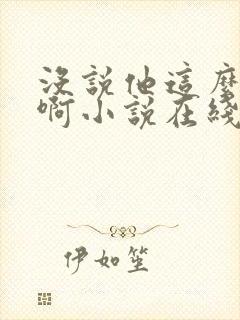 没說他這麼
啊小說在綫
伊如笙